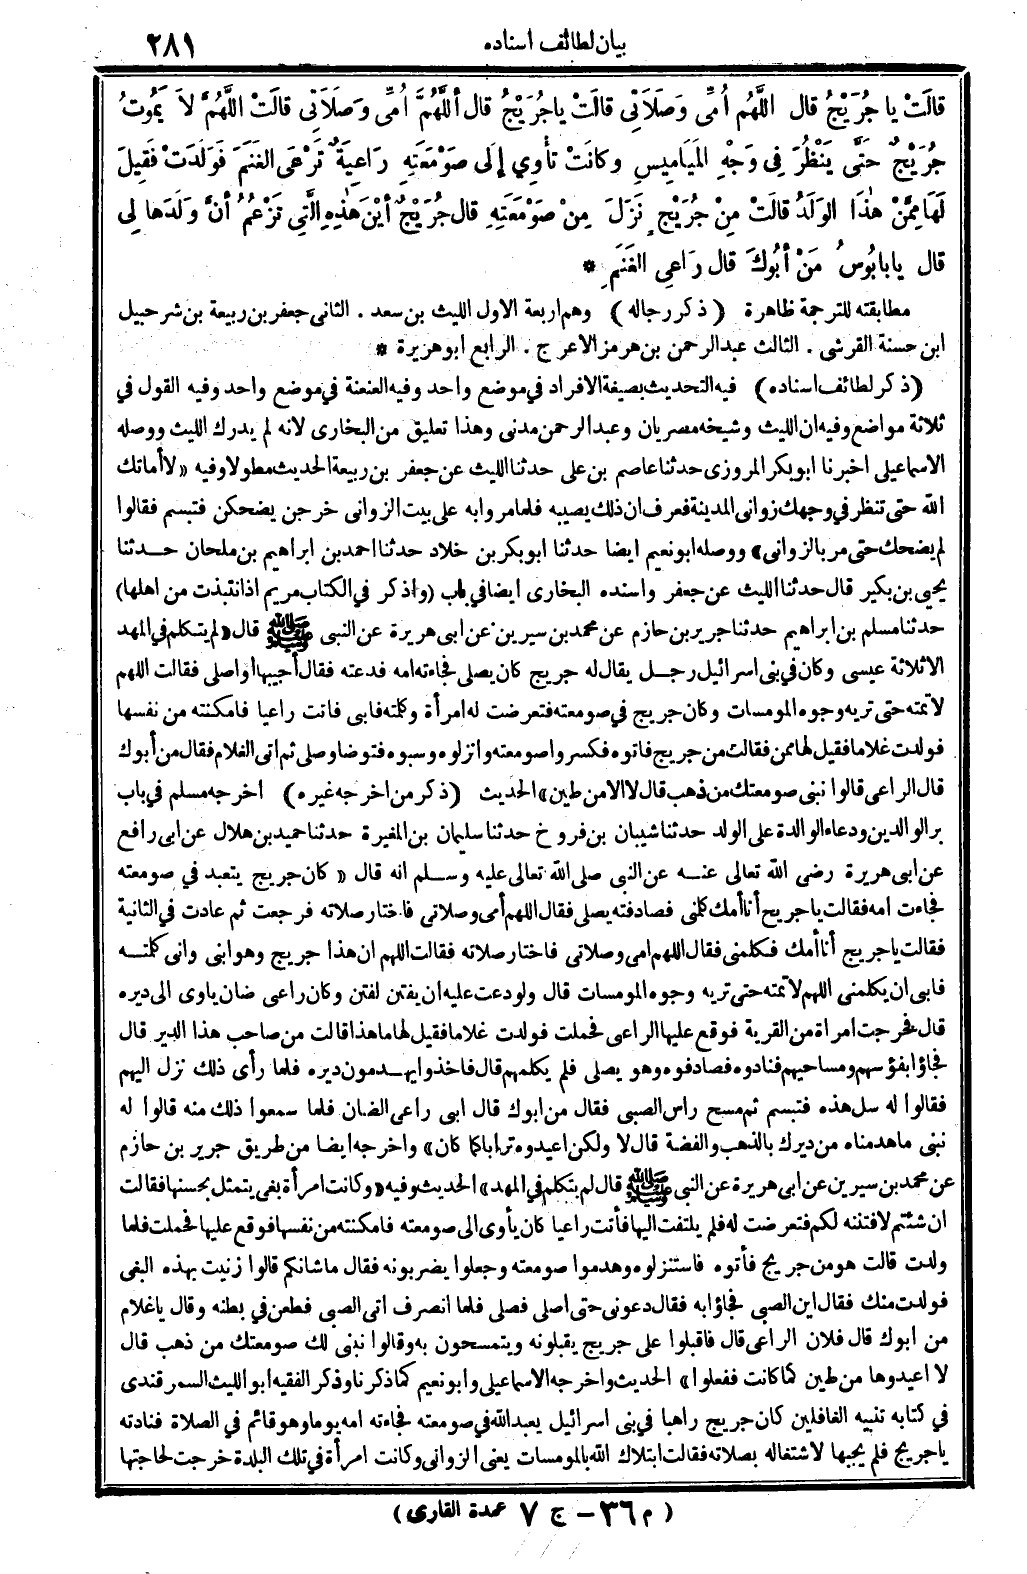 بيان لطائف اسناده
٢٨١
قالَتْ يا جُرَيْجُ قال اللَّهُمَّ أُمِّي وَصَلَاتِي قالَتْ ياجُرَيْجُ قال أللَّهُمَّ أُمِّى وَصَلَاتِى قالَتْ اللَّهُمَّ لاَ يَمُوتُ
جُرَيْجٌ حَتَّى يَنْظُرَ فِى وَجْهِ المَيَامِيسِ وكانَتْ تأْوِي إلَى صَوْمَعَتِهِ رَاعِيَةٌ تَرْعَى الغَنَمَ فَوَلَدَتْ فَقِيلَ
لَهَا مِمَّنْ هٰذَا الوَلَدُ قالَتْ مِنْ جُرَيْجٍ نَزَلَ مِنْ صَوْمَعَتِهِ قال جُرَيْجٌ أيْنَ هَذِهِ الَّتِي تَزْعُمُ أنَّ وَلَدَها لِي
قال يابابُوسُ مَنْ أبُوكَ قال رَاعِى الغَنَمِ *
مطابقته للترجمة ظاهرة (ذكر رجاله) وهم اربعة الاول الليث بن سعد . الثانى جعفر بن ربيعة بن شرحبيل
ابن حسنة القرشى . الثالث عبدالرحمن بن هرمز الاعرج . الرابع ابوهريرة *
(ذكر لطائف اسناده) فيه التحديث بصيغة الافراد في موضع واحد وفيه العنعنة في موضع واحد وفيه القول في
ثلاثة مواضع وفيه ان الليث وشيخه مصريان وعبدالرحمن مدنى وهذا تعليق من البخارى لانه لم يدرك الليث ووصله
الاسماعيلى اخبرنا ابوبكر المروزى حدثنا عاصم بن على حدثنا الليث عن جعفر بن ربيعة الحديث مطولا وفيه «لاأماتك
الله حتى تنظر في وجهك زوانى المدينة فعرف ان ذلك يصيبه فلما مروا به على بيت الزوانى خرجن يضحكن فتبسم فقالوا
لم يضحك حتى مر بالزوانى» ووصله ابونعيم ايضا حدثنا ابوبكر بن خلاد حدثنا احمد بن ابراهيم بن ملحان حدثنا
يحيى بن بكير قال حدثنا الليث عن جعفر واسنده البخارى ايضا في باب (واذكر في الكتاب مريم اذانتبذت من اهلها)
حدثنا مسلم بن ابراهيم حدثنا جرير بن حازم عن محمد بن سيرين عن ابى هريرة عن النبى ﷺ قال «لم يتكلم في المهد
الاثلاثة عيسى وكان في بنى اسرائيل رجل يقال له جريج كان يصلى فجاءته امه فدعته فقال أجيبها او اصلى فقالت اللهم
لاتمته حتى تريه وجوه المومسات وكان جريج في صومعته فتعرضت له امرأة وكلمته فابى فاتت راعيا فامكنته من نفسها
فولدت غلاما فقيل لها ممن فقالت من جريج فاتوه فكسروا صومعته وانزلوه وسبوه فتوضا وصلى ثم اتى الغلام فقال من أبوك
قال الراعى قالوا نبنى صومعتك من ذهب قال لا الا من طين» الحديث (ذكر من اخرجه غيره) اخرجه مسلم في باب
بر الوالدين ودعاء الوالدة على الولد حدثنا شيبان بن فروخ حدثنا سليمان بن المغيرة حدثنا حميد بن هلال عن ابى رافع
عن ابى هريرة رضى الله تعالى عنه عن النبى صلى الله تعالى عليه وسلم انه قال «كان جريج يتعبد في صومعته
فجاءت امه فقالت ياجريج أنا أمك كلمنى فصادفته يصلى فقال اللهم أمى وصلاتى فاختار صلاته فرجعت ثم عادت في الثانية
فقالت ياجريج أنا أمك فكلمنى فقال اللهم امى وصلاتى فاختار صلاته فقالت اللهم ان هذا جريج وهوابنى وانى كلمته
فابى ان يكلمنى اللهم لاتمته حتى تريه وجوه المومسات قال ولو دعت عليه ان يفتن لفتن وكان راعى ضان ياوى الى ديره
قال فخرجت امراة من القرية فوقع عليها الراعى فحملت فولدت غلاما فقيل لها ماهذا قالت من صاحب هذا الدير قال
فجاؤا بفؤسهم ومساحيهم فنادوه فصادفوه وهو يصلى فلم يكلمهم قال فاخذوا يهدمون ديره فلما رأى ذلك نزل اليهم
فقالوا له سل هذه فتبسم ثم مسح راس الصبى فقال من ابوك قال ابى راعى الضان فلما سمعوا ذلك منه قالوا له
نبنى ماهدمناه من ديرك بالذهب والفضة قال لا ولكن اعيدوه ترابا كما كان» واخرجه ايضا من طريق جرير بن حازم
عن محمد بن سيرين عن ابى هريرة عن النبى ﷺ قال لم يتكلم في المهد» الحديث وفيه «وكانت امرأة بغى يتمثل بحسنها فقالت
ان شئتم لافتننه لكم فتعرضت له فلم يلتفت اليها فأتت راعيا كان يأوى الى صومعته فامكنته من نفسها فوقع عليها فحملت فلما
ولدت قالت هو من جريج فأتوه فاستنزلوه وهدموا صومعته وجعلوا يضربونه فقال ماشانكم قالوا زنيت بهذه البغى
فولدت منك فقال اين الصبى فجاؤا به فقال دعونى حتى اصلى فصلى فلما انصرف اتى الصبى فطعن في بطنه وقال ياغلام
من ابوك قال فلان الراعى قال فاقبلوا على جريج يقبلونه ويتمسحون به وقالوا نبنى لك صومعتك من ذهب قال
لا اعيدوها من طين كما كانت ففعلوا» الحديث واخرجه الاسماعيلى وابونعيم كماذكرنا وذكر الفقيه ابوالليث السمرقندى
في كتابه تنبيه الغافلين كان جريج راهبا في بنى اسرائيل يعبدالله في صومعته فجاءته امه يوما وهو قائم في الصلاة فنادته
ياجريج فلم يجبها لاشتغاله بصلاته فقالت ابتلاك الله بالمومسات يعنى الزوانى وكانت امرأة في تلك البلدة خرجت لحاجتها
(م ٣٦ - ج ٧ عمدة القارى)